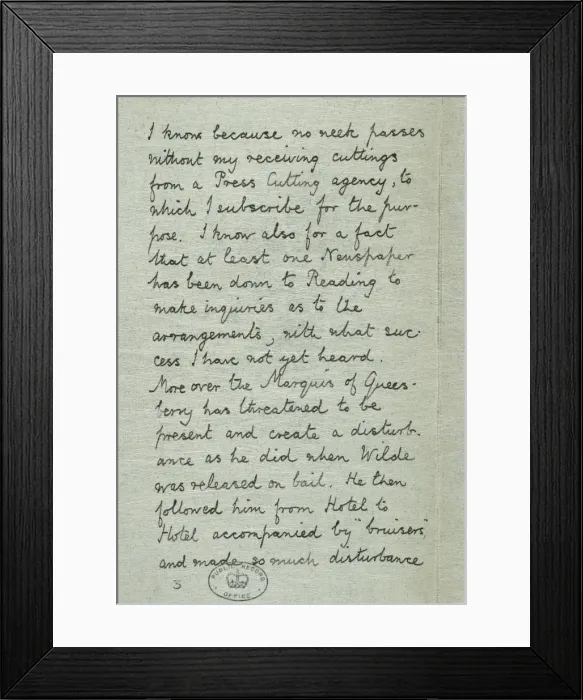 I know because no week passes
without my receiving cuttings
from a Press Cutting agency, to
which I subscribe for the pur-
pose. I know also for a fact
that at least one Newspaper
has been down to Reading to
make inquiries as to the
arrangements, with what suc-
cess I have not yet heard.
More over the Marquis of Queens-
berry has threatened to be
present and create a disturb-
ance as he did when Wilde
was released on bail. He then
followed him from Hotel to
Hotel accompanied by "bruisers"
and made so much disturbance
3
PUBLIC RECORD
OFFICE